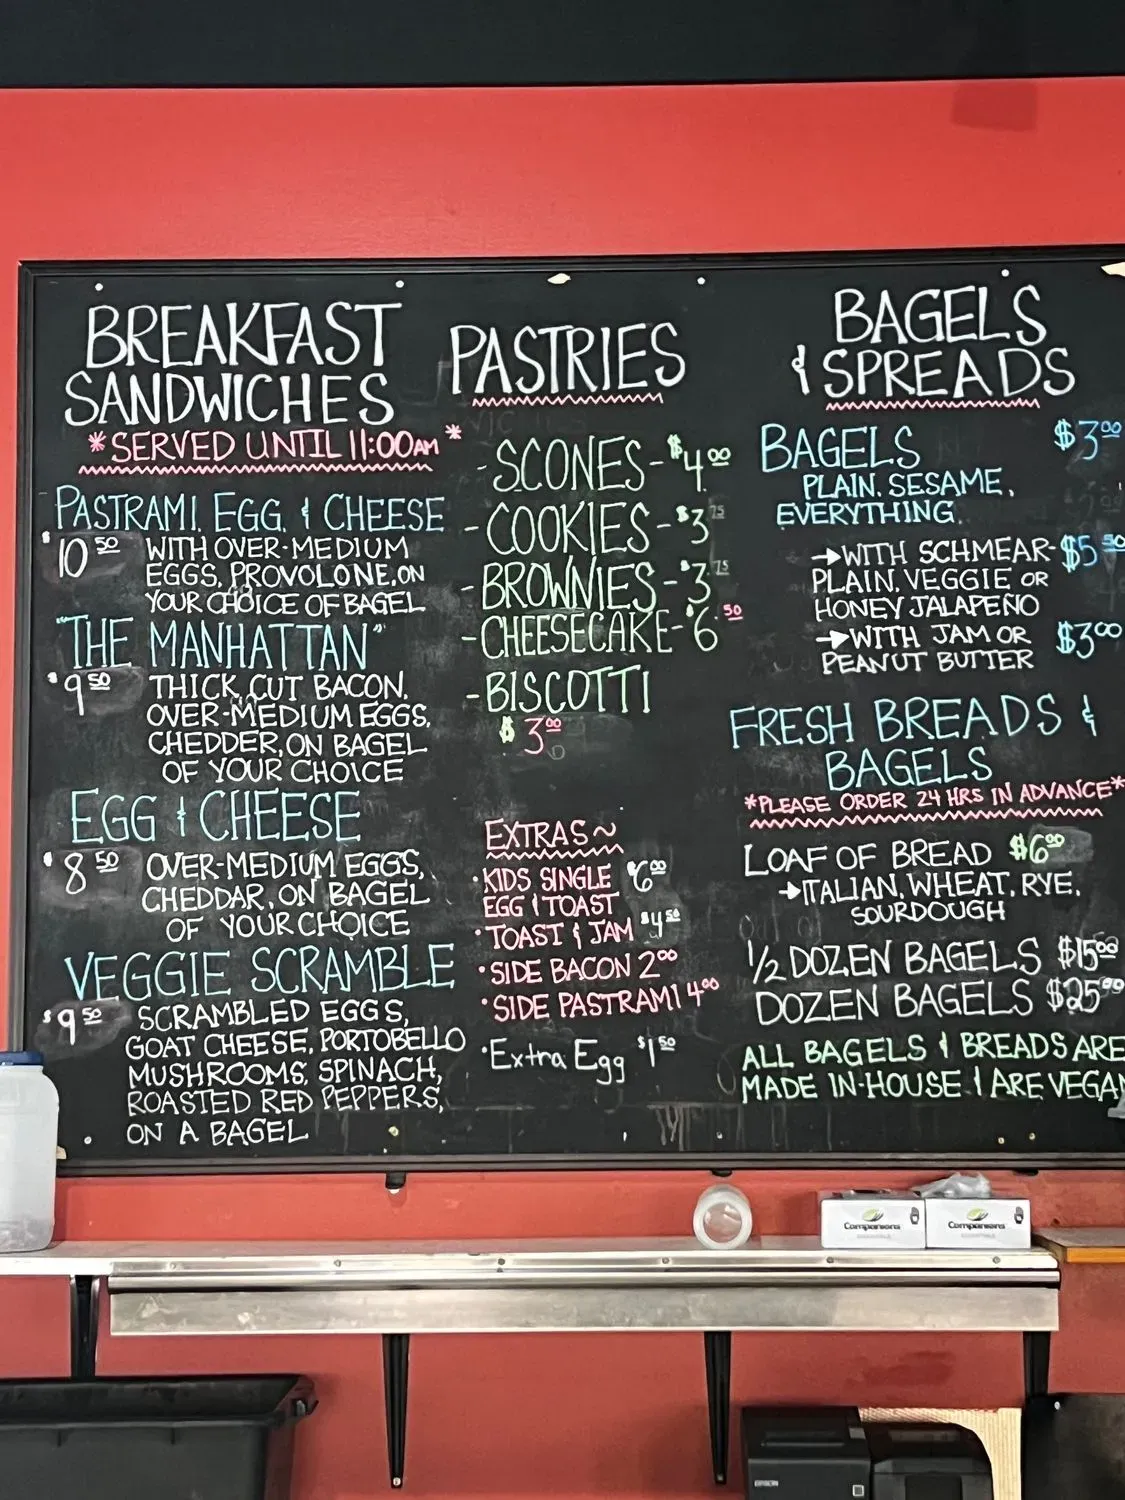 BREAKFAST
SANDWICHES
*SERVED UNTIL 11:00AM*
PASTRAMI, EGG, & CHEESE
$10.50 WITH OVER-MEDIUM
EGGS, PROVOLONE, ON
YOUR CHOICE OF BAGEL
"THE MANHATTAN"
$9.50 THICK CUT BACON,
OVER-MEDIUM EGGS,
CHEDDER, ON BAGEL
OF YOUR CHOICE
EGG & CHEESE
$8.50 OVER-MEDIUM EGGS,
CHEDDAR, ON BAGEL
OF YOUR CHOICE
VEGGIE SCRAMBLE
$9.50 SCRAMBLED EGGS,
GOAT CHEESE, PORTOBELLO
MUSHROOMS, SPINACH,
ROASTED RED PEPPERS,
ON A BAGEL
PASTRIES
-SCONES-$4.00
-COOKIES-$3.75
-BROWNIES-$3.75
-CHEESECAKE-$6.50
-BISCOTTI
$3.00
EXTRAS~
·KIDS SINGLE $6.00
EGG & TOAST
·TOAST & JAM $4.50
·SIDE BACON 2.00
·SIDE PASTRAMI 4.00
·Extra Egg $1.50
BAGELS
& SPREADS
BAGELS $3.00
PLAIN, SESAME,
EVERYTHING
→WITH SCHMEAR-$5.50
PLAIN, VEGGIE OR
HONEY JALAPEÑO
→WITH JAM OR $3.00
PEANUT BUTTER
FRESH BREADS &
BAGELS
*PLEASE ORDER 24 HRS IN ADVANCE*
LOAF OF BREAD $6.00
→ITALIAN, WHEAT, RYE,
SOURDOUGH
1/2 DOZEN BAGELS $15.00
DOZEN BAGELS $25.00
ALL BAGELS & BREADS ARE
MADE IN-HOUSE & ARE VEGAN
Companions
Companions
EPSON